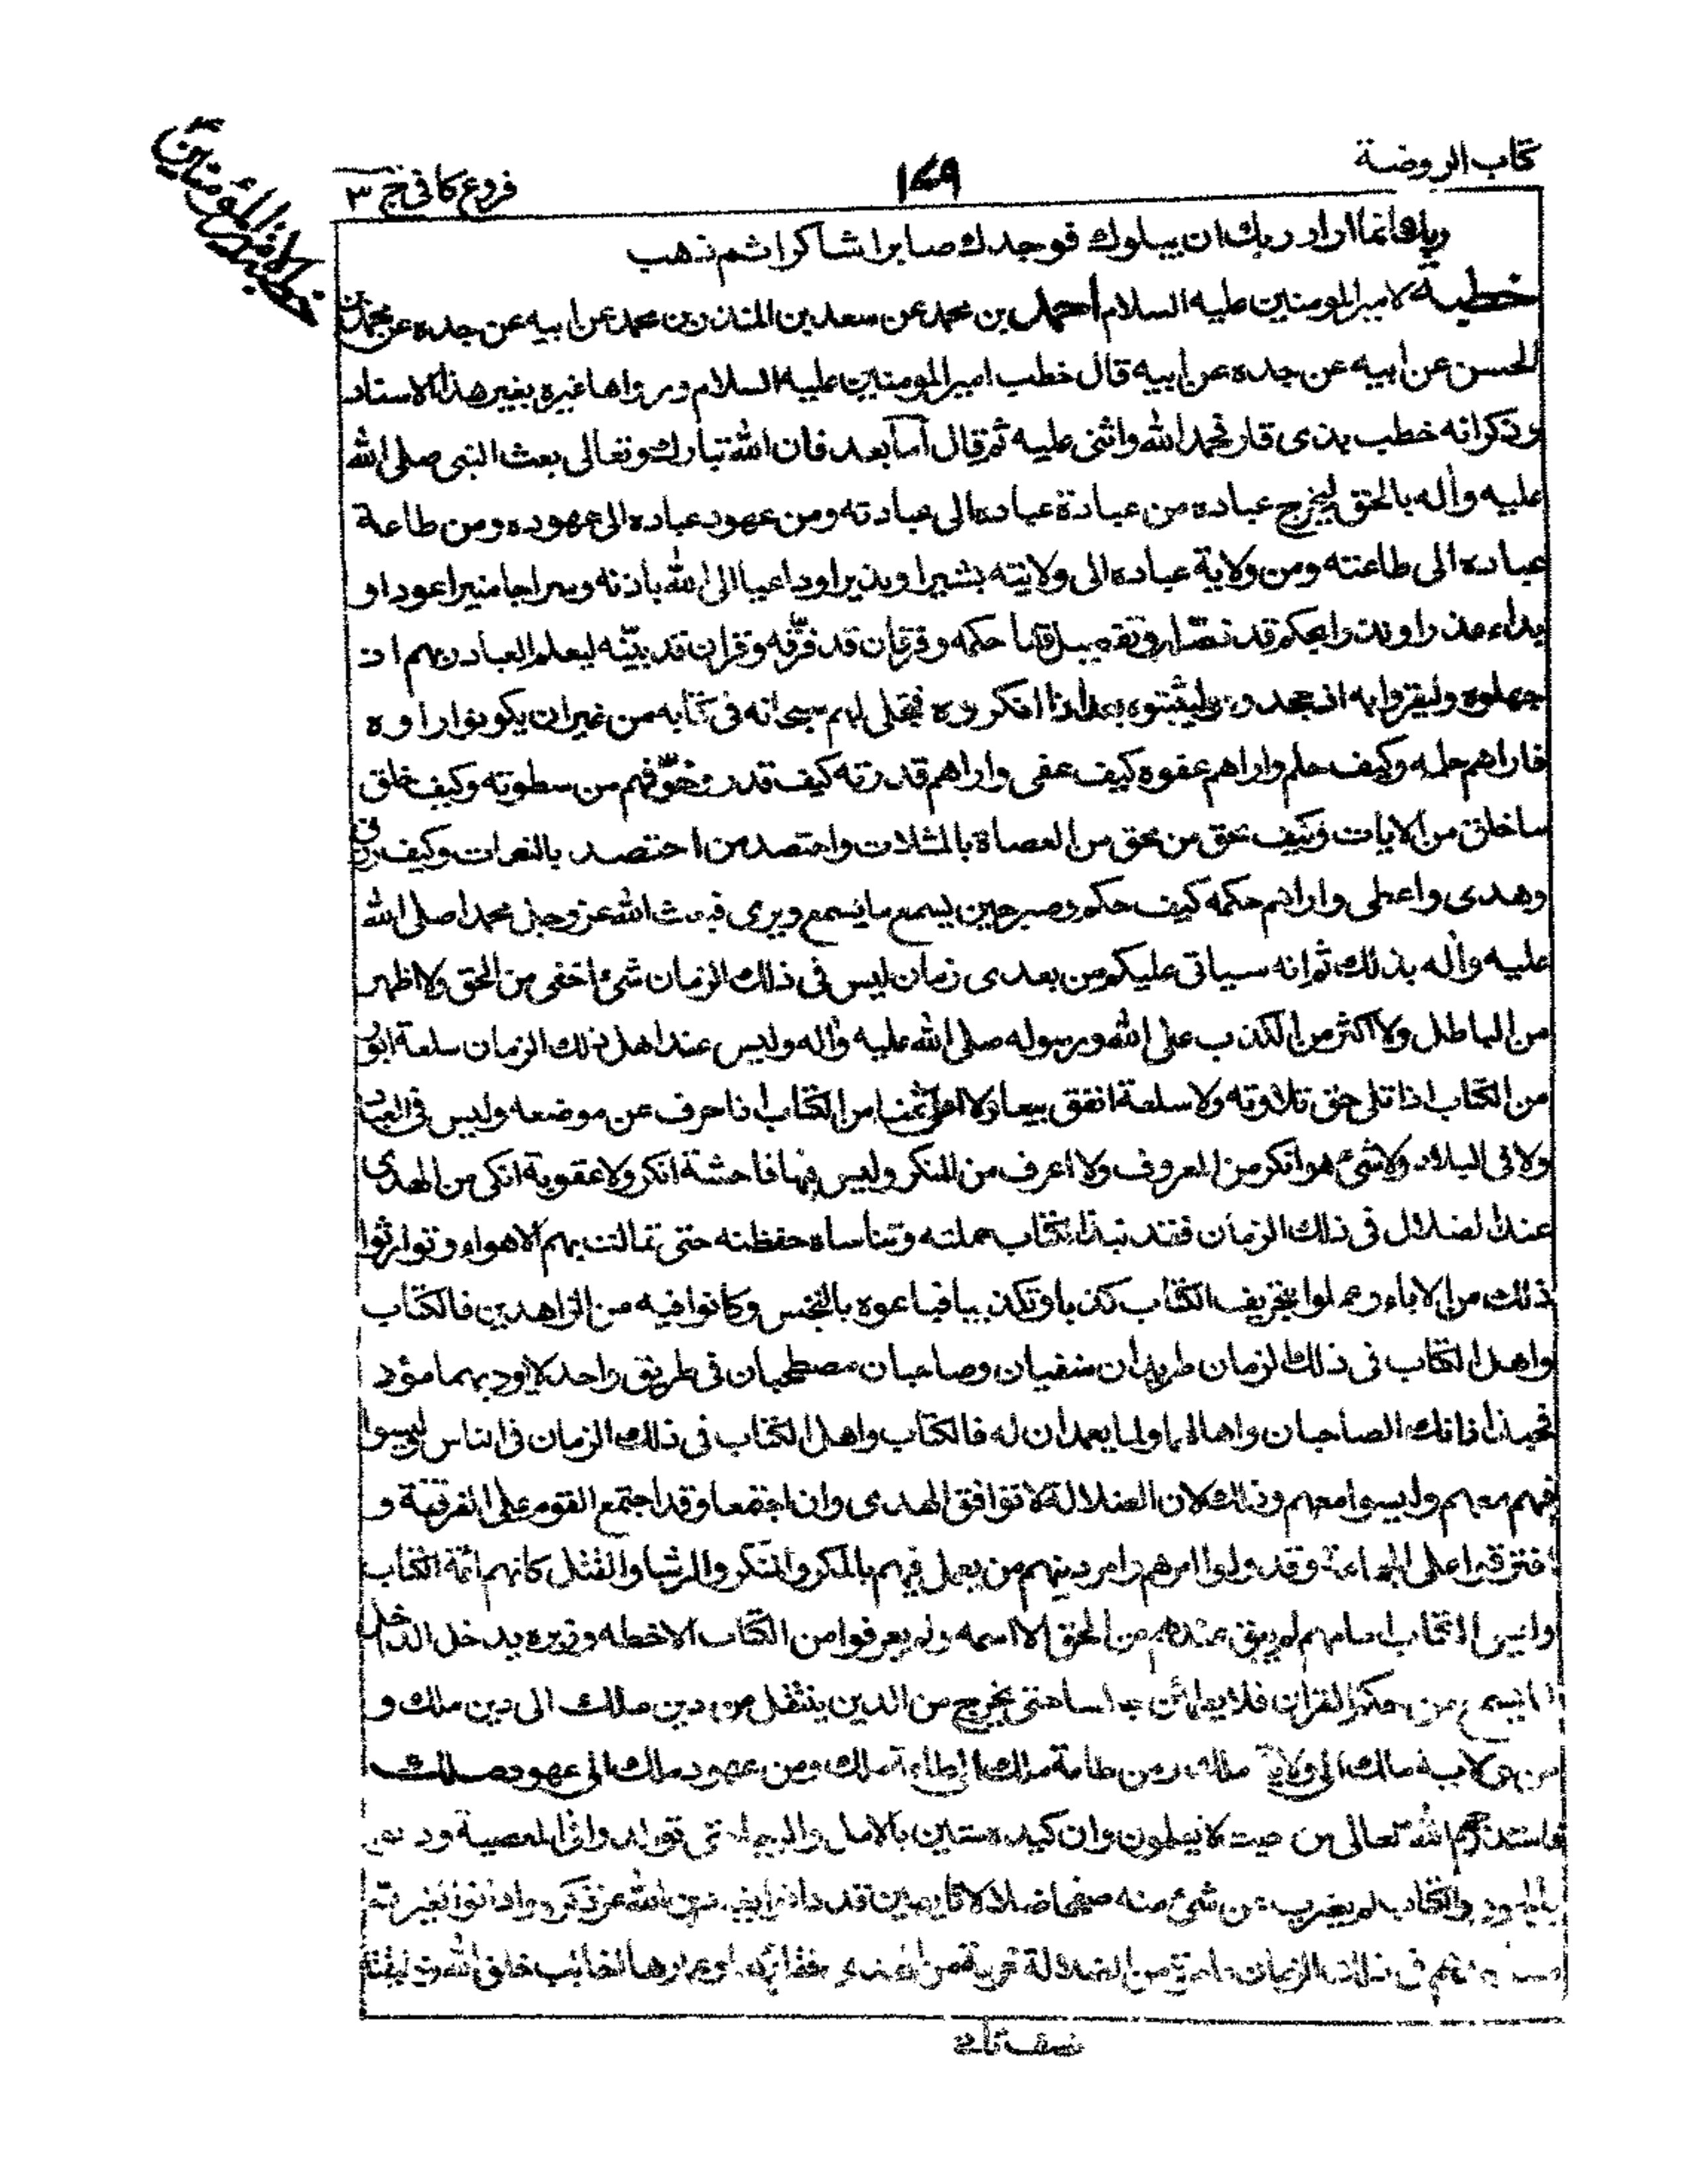 كتاب الروضة
١٧٩
فروع كافى ج ٣
خطبة لامير المؤمنين
ربك وانما اراد ربك ان يبلوك فوجدك صابرا شاكرا ثم ذهب
خطبة لامير المومنين عليه السلام احمد بن محمد عن سعد بن المنذر بن محمد عن ابيه عن جده عن محمد بن
الحسن عن ابيه عن جده عن ابيه قال خطب امير المومنين عليه السلام ورواها غيره بغير هذا الاسناد
وذكر انه خطب بذى قار فحمد الله واثنى عليه ثم قال اما بعد فان الله تبارك وتعالى بعث النبى صلى الله
عليه واله بالحق ليخرج عباده من عبادة عباده الى عبادته ومن عهود عباده الى عهوده ومن طاعة
عباده الى طاعته ومن ولاية عباده الى ولايته بشيرا ونذيرا وداعيا الى الله باذنه وسراجا منيرا عودا و
بداء عذرا ونذرا بحكم قد فصله وتفصيل قد احكمه وفرقان قد فرّقه وقران قد بيّنه ليعلم العباد ربهم اذ
جهلوه وليقروا به اذ جحدوه وليثبتوه بعد اذا انكروه فتجلى لهم سبحانه فى كتابه من غير ان يكونوا راوه
فاراهم حلمه وكيف حلم واراهم عفوه كيف عفى واراهم قدرته كيف قدر وخوّفهم من سطوته وكيف خلق
ما خلق من الايات وكيف محق من محق من العصاة بالمثلات واحتصد من احتصد بالنقمات وكيف رزق
وهدى واعطى واراهم حكمه كيف حكم وصبر حين يسمع ما يسمع ويرى فبعث الله عز وجل محمدا صلى الله
عليه واله بذلك ثم انه سياتى عليكم من بعدى زمان ليس فى ذلك الزمان شئ اخفى من الحق ولا اظهر
من الباطل ولا اكثر من الكذب على الله ورسوله صلى الله عليه واله وليس عند اهل ذلك الزمان سلعة ابور
من الكتاب اذا تلى حق تلاوته ولا سلعة انفق بيعا ولا اغلى ثمنا من الكتاب اذا حرف عن موضعه وليس فى العباد
ولا فى البلاد ولا شئ هو انكر من المعروف ولا اعرف من المنكر وليس فيها فاحشة انكر ولا عقوبة انكى من الهدى
عند الضلال فى ذلك الزمان فقد نبذ الكتاب حملته وتناساه حفظته حتى تمالت بهم الاهواء وتوارثوا
ذلك من الاباء وعملوا بتحريف الكتاب كذبا وتكذيبا فباعوه بالبخس وكانوا فيه من الزاهدين فالكتاب
واهل الكتاب فى ذلك الزمان طريدان منفيان وصاحبان مصطحبان فى طريق واحد لا ياويهما مؤو
فحبذا ذانك الصاحبان واها لهما ولما يعمدان له فالكتاب واهل الكتاب فى ذلك الزمان فى الناس وليسوا
فيهم ومعهم وليسوا معهم وذلك لان الضلالة لا توافق الهدى وان اجتمعا وقد اجتمع القوم على الفرقة و
افترقوا على الجماعة وقد ولوا امرهم وامر دينهم من يعمل فيهم بالمكر والمنكر والرشا والقتل كانهم ائمة الكتاب
وليس الكتاب امامهم لم يبق عندهم من الحق الا اسمه ولم يعرفوا من الكتاب الا خطه وزبره يدخل الداخل
لما يسمع من حكم القران فلا يطمئن جالسا حتى يخرج من الدين ينتقل من دين ملك الى دين ملك و
من ولاية ملك الى ولاية ملك ومن طاعة ملك الى طاعة ملك ومن عهود ملك الى عهود ملك
فاستدرجهم الله تعالى من حيث لا يعلمون وان كيده متين بالامل والرجاء حتى توالدوا فى المعصية ود
بالجور والكتاب لم يضرب عن شئ منه صفحا ضلالا تايهين قد دانوا بغير دين الله عز ذكره وادانوا لغير الله
مساجدهم فى ذلك الزمان عامرة من الضلالة خربة من الهدى فقراؤها وعمارها اخائب خلق الله وخليقته